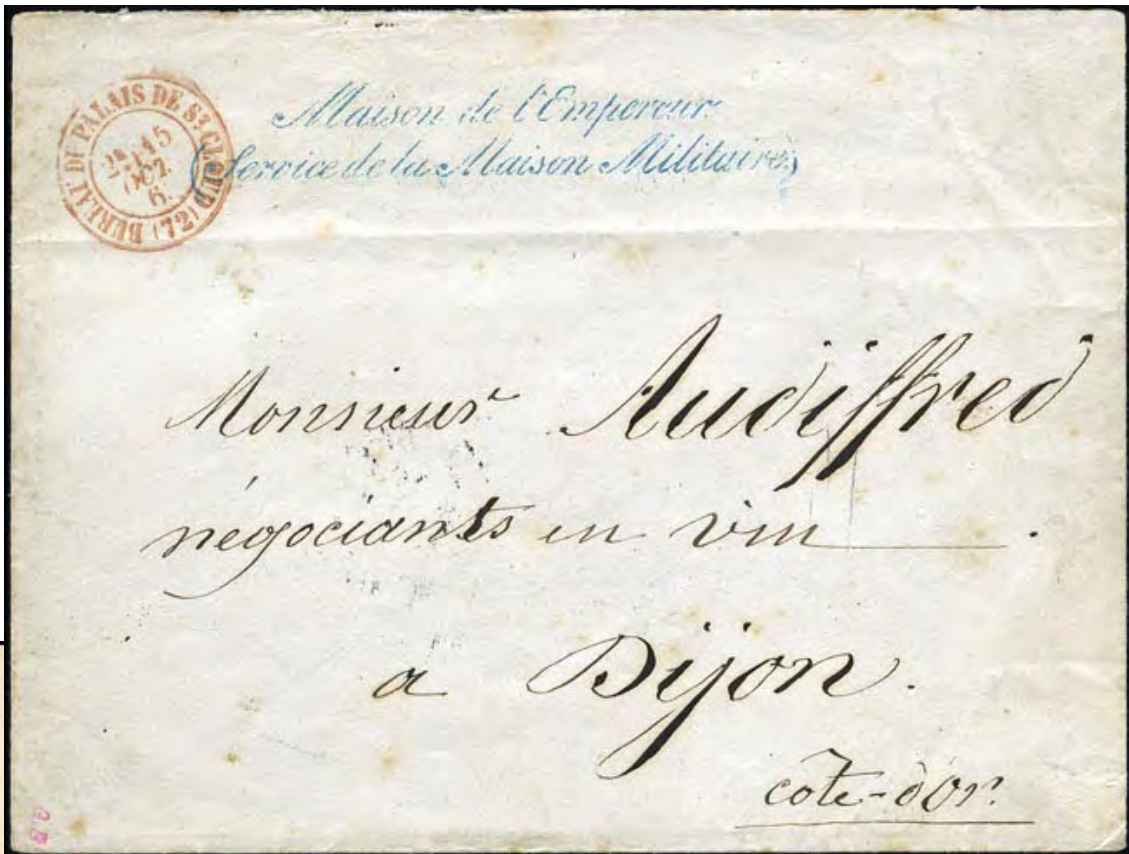 BUREAU DU PALAIS DE St CLOUD (72)
15
OCT.
6.
Maison de l'Empereur
(Service de la Maison Militaire)
Monsieur Audiffred
négociants en vin
a Dijon.
côte-d'Or.